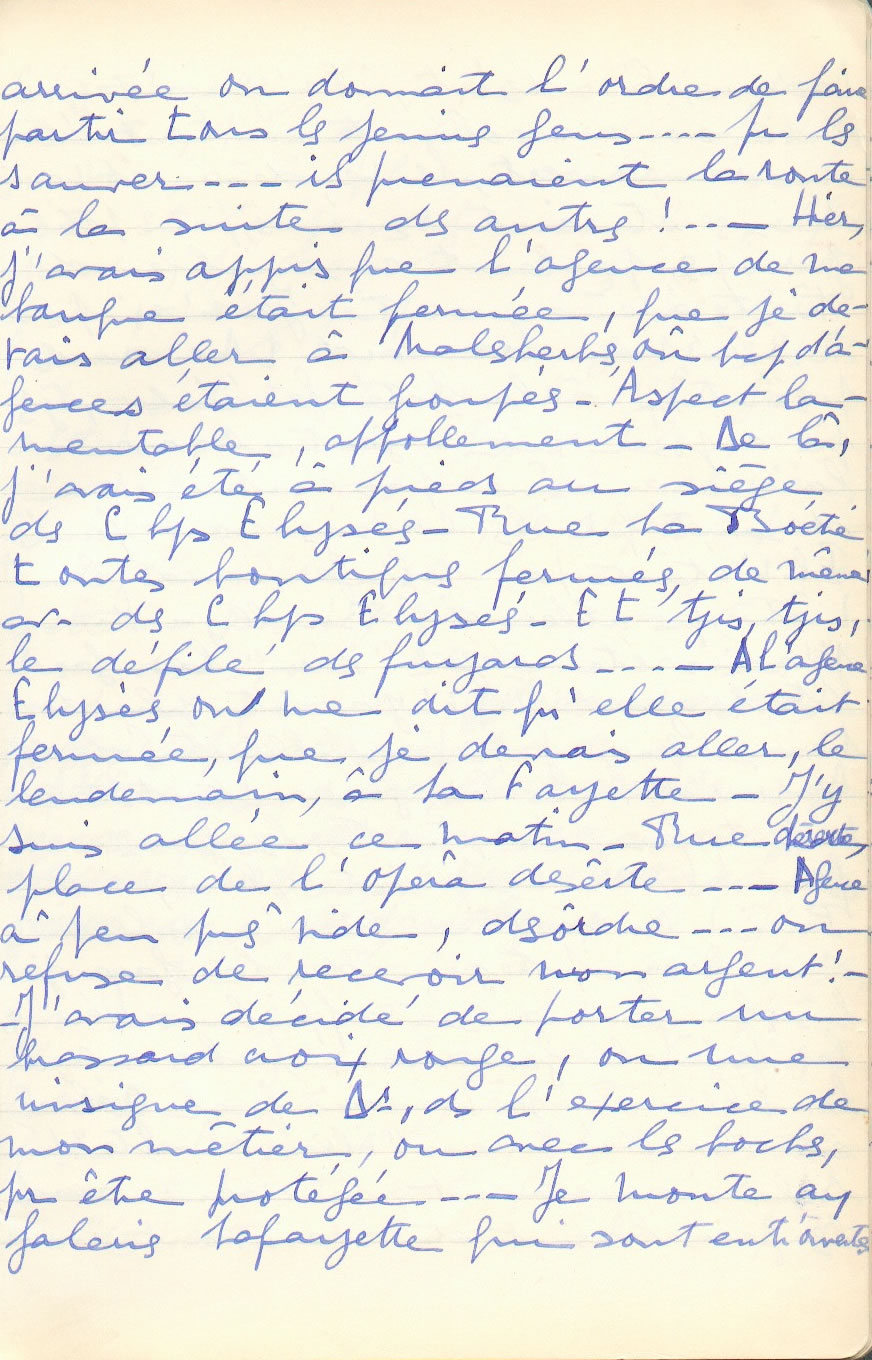 arrivée on donnait l'ordre de faire
partir tous ls jeunes gens---- pr ls
sauver --- ils prenaient la route
à la suite ds autres ! --- Hier,
j'avais appris que l'agence de ma
banque était fermée, que je de-
vais aller à Malsherbs, où bcp d'a-
gences étaient groupés - Aspect la-
mentable, affollement - De là,
j'avais été à pieds au siège
ds Chps Elysés - Rue La Boétie
toutes boutiqus fermés, de même
av. ds Chps Elysés - Et tjrs, tjrs,
le défilé ds fuyards ---- A l'agence
Elysés on me dit qu'elle était
fermée, que je devais aller, le
lendemain, à La Fayette - J'y
suis allée ce matin - Rue déserte,
place de l'opéra déserte --- Agence
à peu près vide, désordre --- on
refuse de recevoir mon argent ! -
- J'avais décidé de porter un
brassard croix rouge, ou une
insigne de Dr, ds l'exercice de
mon métier, ou avec ls bochs,
pr être protégée --- Je monte aux
galeris Lafayette qui sont entr'ouvertes